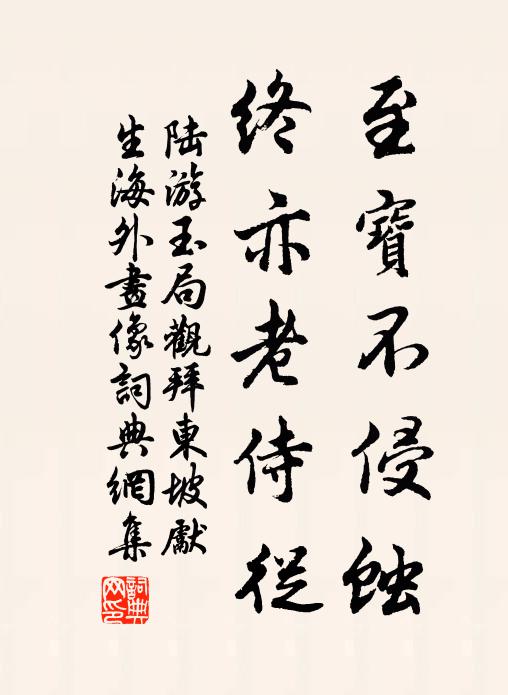 至寶不侵蝕
終亦老侍從
陆游玉局觀拜東坡獻
生海外畫像詞典網集
詞典网印